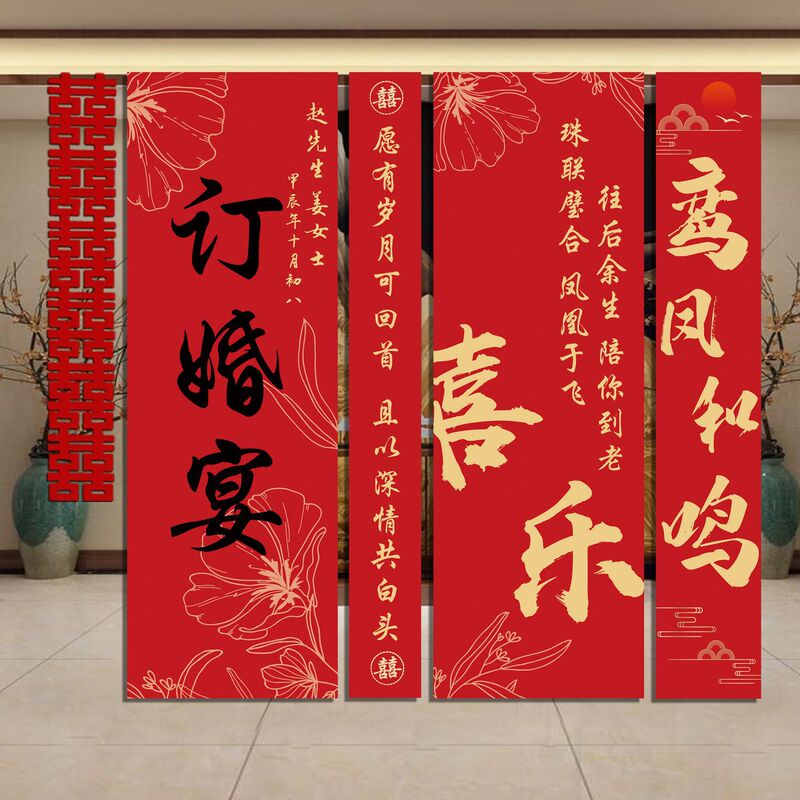 囍囍囍囍囍囍囍囍囍囍囍
订婚宴
赵先生 姜女士
甲辰年十月初八
囍
愿有岁月可回首 且以深情共白头
囍
喜乐
珠联璧合 凤凰于飞
往后余生 陪你到老
鸾凤和鸣